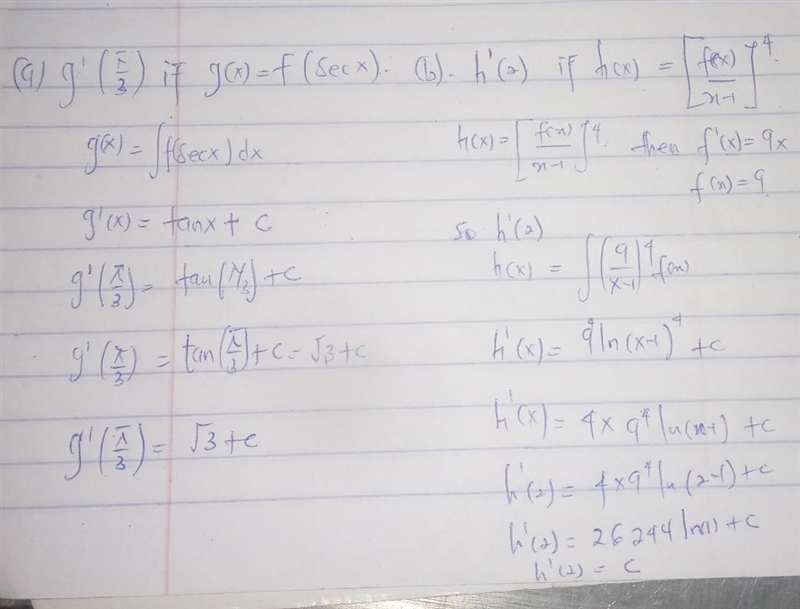 (a) g'(π/3) if g(x) = f(Sec x). (b). h'(2) if h(x) = [f(x)/x-1]^4.
g(x) = ∫f(Sec x) dx
g'(x) = tan x + C
g'(π/3) = tan(π/3) + C
g'(π/3) = tan(π/3) + C = √3 + C
g'(π/3) = √3 + C
h(x) = [f(x)/x-1]^4. then f'(x) = 9x
f(x) = 9
So h'(2)
h(x) = ∫(9/x-1)^4 f(x)
h'(x) = 9^4 ln(x-1)^4 + C
h'(x) = 4 x 9^4 ln(x-1) + C
h'(2) = 4 x 9^4 ln(2-1) + C
h'(2) = 26244 ln(1) + C
h'(2) = C